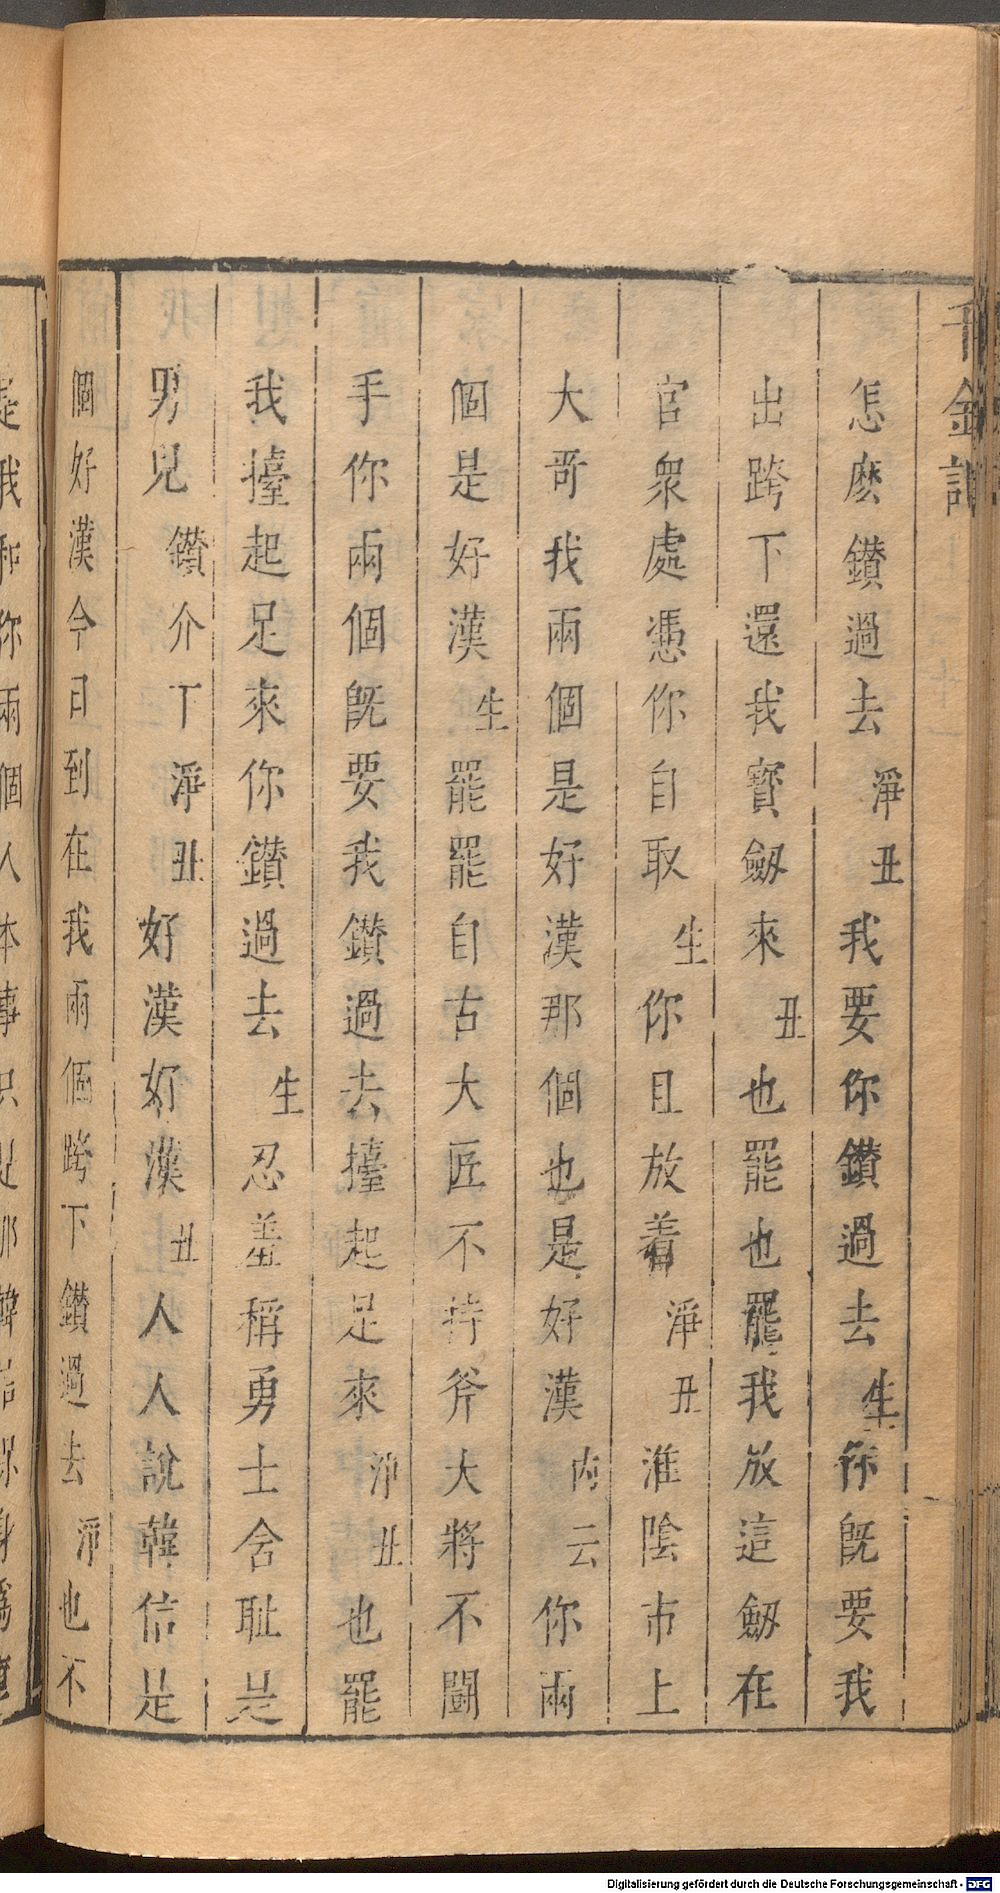 千金記
怎麽鑚過去淨丑我要你鑚過去生你旣要我
出跨下還我寳劔來丑也罷也罷我放這劔在
官衆處憑你自取生你且放着淨丑淮陰市上
大哥我兩個是好漢那個也是好漢内云你兩
個是好漢生罷罷自古大匠不持斧大將不鬬
手你兩個旣要我鑚過去擡起足來淨丑也罷
我擡起足來你鑚過去生忍羞稱勇士舍耻是
男兒鑚介丁淨丑好漢好漢丑人人說韓信是
個好漢今日到在我兩個跨下鑚過去淨也不
是我和你兩個人本事只是那韓信
Digitalisierung gefördert durch die Deutsche Forschungsgemeinschaft - DFG